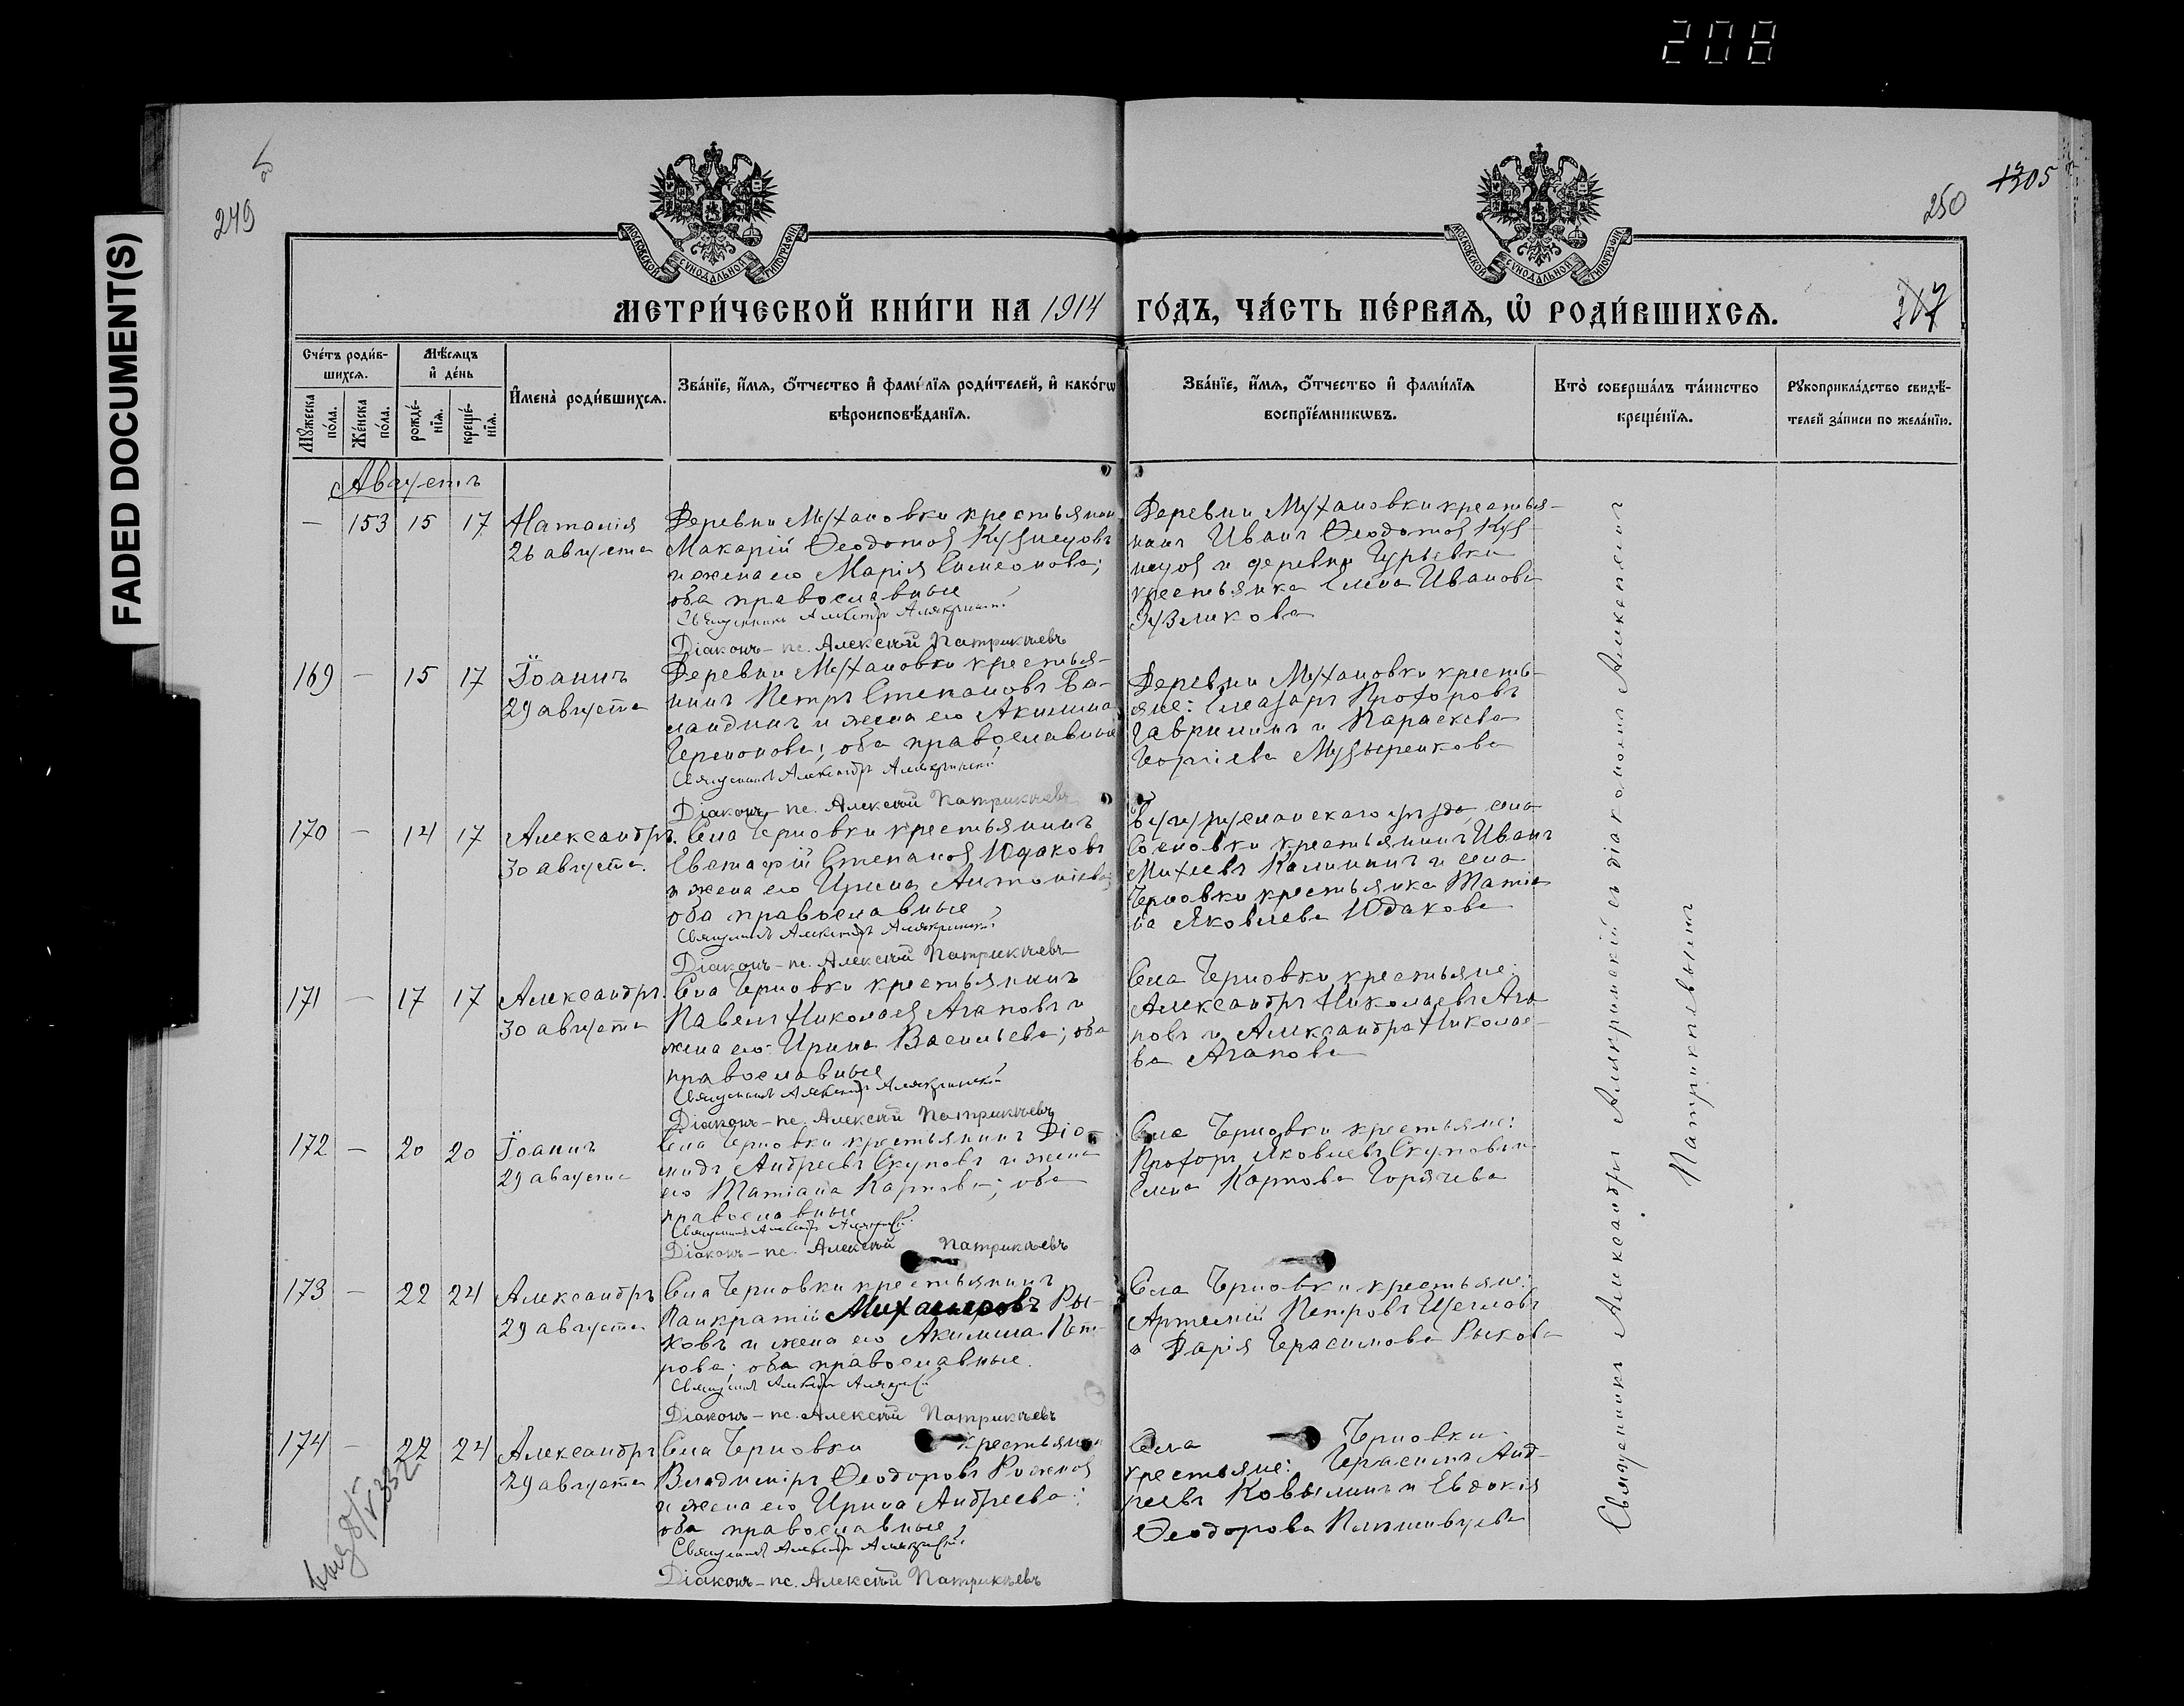 208
FADED DOCUMENT(S)
249
250
1305
317
МОСКОВСКОЙ СѴНОДАЛЬНОЙ ТИПОГРАФІИ
МОСКОВСКОЙ СѴНОДАЛЬНОЙ ТИПОГРАФІИ
МЕТРИ́ЧЕСКОЙ КНИ́ГИ НА 1914 ГО́ДЪ, ЧА́СТЬ ПЕ́РВАѦ, Ѡ҆ РОДИ́ВШИХСѦ.
Сче́тъ роди́в-
шихсѧ.
Мꙋ́жеска
по́ла.
Же́нска
по́ла.
Мѣ́сѧцъ
и҆ де́нь
рожде́-
нїѧ.
креще́-
нїѧ.
И҆мена̀ роди́вшихсѧ.
Зва́нїе, и҆́мѧ, ѻ҆́тчество и҆ фами́лїѧ роди́телей, и҆ како́гѡ
вѣроисповѣ́данїѧ.
Зва́нїе, и҆́мѧ, ѻ҆́тчество и҆ фами́лїѧ
воспрїе́мникѡвъ.
Кто̀ соверша́лъ та́инство
креще́нїѧ.
Рꙋкоприкла́дство свидѣ́-
телей за́писи по жела́нїю.
Августъ
— 153 15 17 Наталія
26 августа
Деревни Мухановки крестьянин
Макарій Ѳеодотов Кузнецовъ
и жена его Марія Симеонова;
оба православные
Священникъ Александръ Алякринскій
Діаконъ – пс. Алексѣй Патрикѣевъ
Деревни Мухановки крестья-
нинъ Иванъ Ѳеодотов Куз
нецов и деревни Гурьевки
крестьянка Елена Иванова
Рузликова
169 — 15 17 Іоаннъ
29 августа
Деревни Мухановки крестья-
нинъ Петръ Степановъ Ба-
ландинъ и жена его Акилина
оба православные
Священникъ Александръ Алякринскій
Діаконъ – пс. Алексѣй Патрикѣевъ
Деревни Мухановки кресть-
яне: Елеазаръ Прохоровъ
Гаврилинъ и Параскева
Георгіева Музыренкова
170 — 14 17 Александръ.
30 августа.
Села Черновки крестьянинъ
Евстафій Степанов Юдаковъ
и жена его Ирина Антоніева;
оба православные
Священникъ Александръ Алякринскій
Діаконъ – пс. Алексѣй Патрикѣевъ
Бугурусланскаго уѣзда, села
Сосновки крестьянинъ Иванъ
Михеевъ Калининъ и села
Черновки крестьянка Татіа
на Яковлева Юдакова
171 — 17 17 Александръ.
30 августа
Села Черновки крестьянинъ
Павелъ Николаев Агаповъ и
жена его Ирина Васильева; оба
православные
Священникъ Александръ Алякринскій
Діаконъ – пс. Алексѣй Патрикѣевъ
Села Черновки крестьяне:
Александръ Николаевъ Ага
повъ и Александра Николае-
ва Агапова
172 — 20 20 Іоаннъ
29 августа
Села Черновки крестьянинъ Діо-
мидъ Андреевъ Скуповъ и жена
его Татіана Карпова; оба
православные
Священникъ Александръ Алякринскій
Діаконъ – пс. Алексѣй Патрикѣевъ
Села Черновки крестьяне:
Прохоръ Яковлевъ Скуповъ и
Елена Карпова Горячева
173 — 22 24 Александръ
29 августа
Села Черновки крестьянинъ
Панкратій Ры-
ковъ и жена его Акилина Пет-
рова; оба православные.
Священникъ Александръ Алякринскій
Діаконъ – пс. Алексѣй Патрикѣевъ
Села Черновки крестьяне:
Артемій Петровъ Щегловъ
и Дарія Герасимова Рыкова
174 — 22 24 Александръ
29 августа
Села Черновки крестьянин
Владиміръ Ѳеодоровъ Роженов
и жена его Ирина Андреева;
оба православные
Священникъ Александръ Алякринскій
Діаконъ – пс. Алексѣй Патрикѣевъ
Села Черновки
крестьяне: Герасимъ Анд-
реевъ Ковылинъ и Евдокія
Ѳеодорова
Священникъ Александръ Алякринскій съ діакономъ Алексѣемъ
Патрикѣевымъ